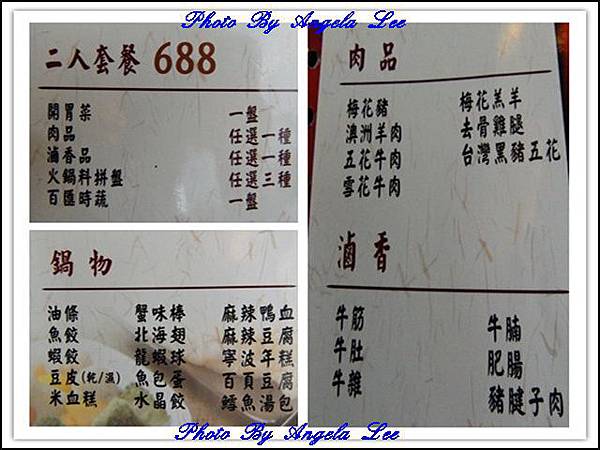 Photo By Angela Lee
二人套餐 688
開胃菜 一盤
肉品 任選一種
滷香品 任選一種
火鍋料拼盤 任選三種
百匯時蔬 一盤
鍋物
油條 蟹味棒 麻辣鴨血
魚餃 北海翅 麻辣豆腐
蝦餃 龍蝦球 寧波年糕
豆皮(乾/濕) 魚包蛋 百頁豆腐
米血糕 水晶餃 鱈魚湯包
肉品
梅花豬 梅花羔羊
澳洲羊肉 去骨雞腿
五花牛肉 台灣黑豬五花
雪花牛肉
滷香
牛筋 牛腩
牛肚 肥腸
牛雜 豬腱子肉
Photo By Angela Lee